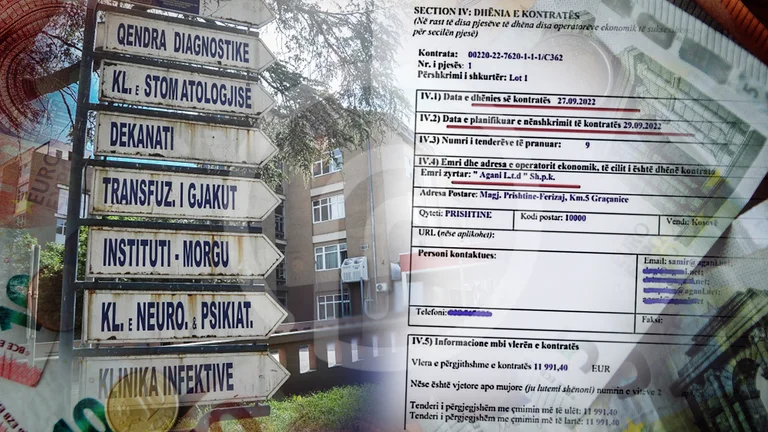 QENDRA DIAGNOSTIKE
KL. E STOMATOLOGJISË
DEKANATI
TRANSFUZ. I GJAKUT
INSTITUTI - MORGU
KL. E NEURO. & PSIKIAT.
KLINIKA INFEKTIVE
EURO
SECTION IV: DHËNIA E KONTRATËS
(Në rast të disa pjesëve të dhëna disa operatorëve ekonomik të
për secilën pjesë)
Kontrata: 00220-22-7620-1-1-1/C362
Nr. i pjesës: 1
Përshkrimi i shkurtër: Lot 1
IV.1) Data e dhënies së kontratës 27.09.2022
IV.2) Data e planifikuar e nënshkrimit të kontratës 29.09.2022
IV.3) Numri i tenderëve të pranuar: 9
IV.4) Emri dhe adresa e operatorit ekonomik, të cilit i është dhënë kontrata
Emri zyrtar: " Agani L.t.d " Sh.p.k.
Adresa Postare: Magj. Prishtine-Ferizaj, Km.5 Graçanice
Qyteti: PRISHTINE Kodi postar: 10000 Vendi: Kosovë
URL (nëse aplikohet):
Personi kontaktues: Email: samir@agani.net
Telefoni: Faksi:
IV.5) Informacione mbi vlerën e kontratës
Vlera e përgjithshme e kontratës 11 991,40 EUR
Nëse është vjetore apo mujore (ju lutemi shënoni) numrin e vitеve 2
Tenderi i përgjegjshëm me çmimin më të ulët: 11 991,40
Tenderi i përgjegjshëm me çmimin më të lartë: 11 991,40